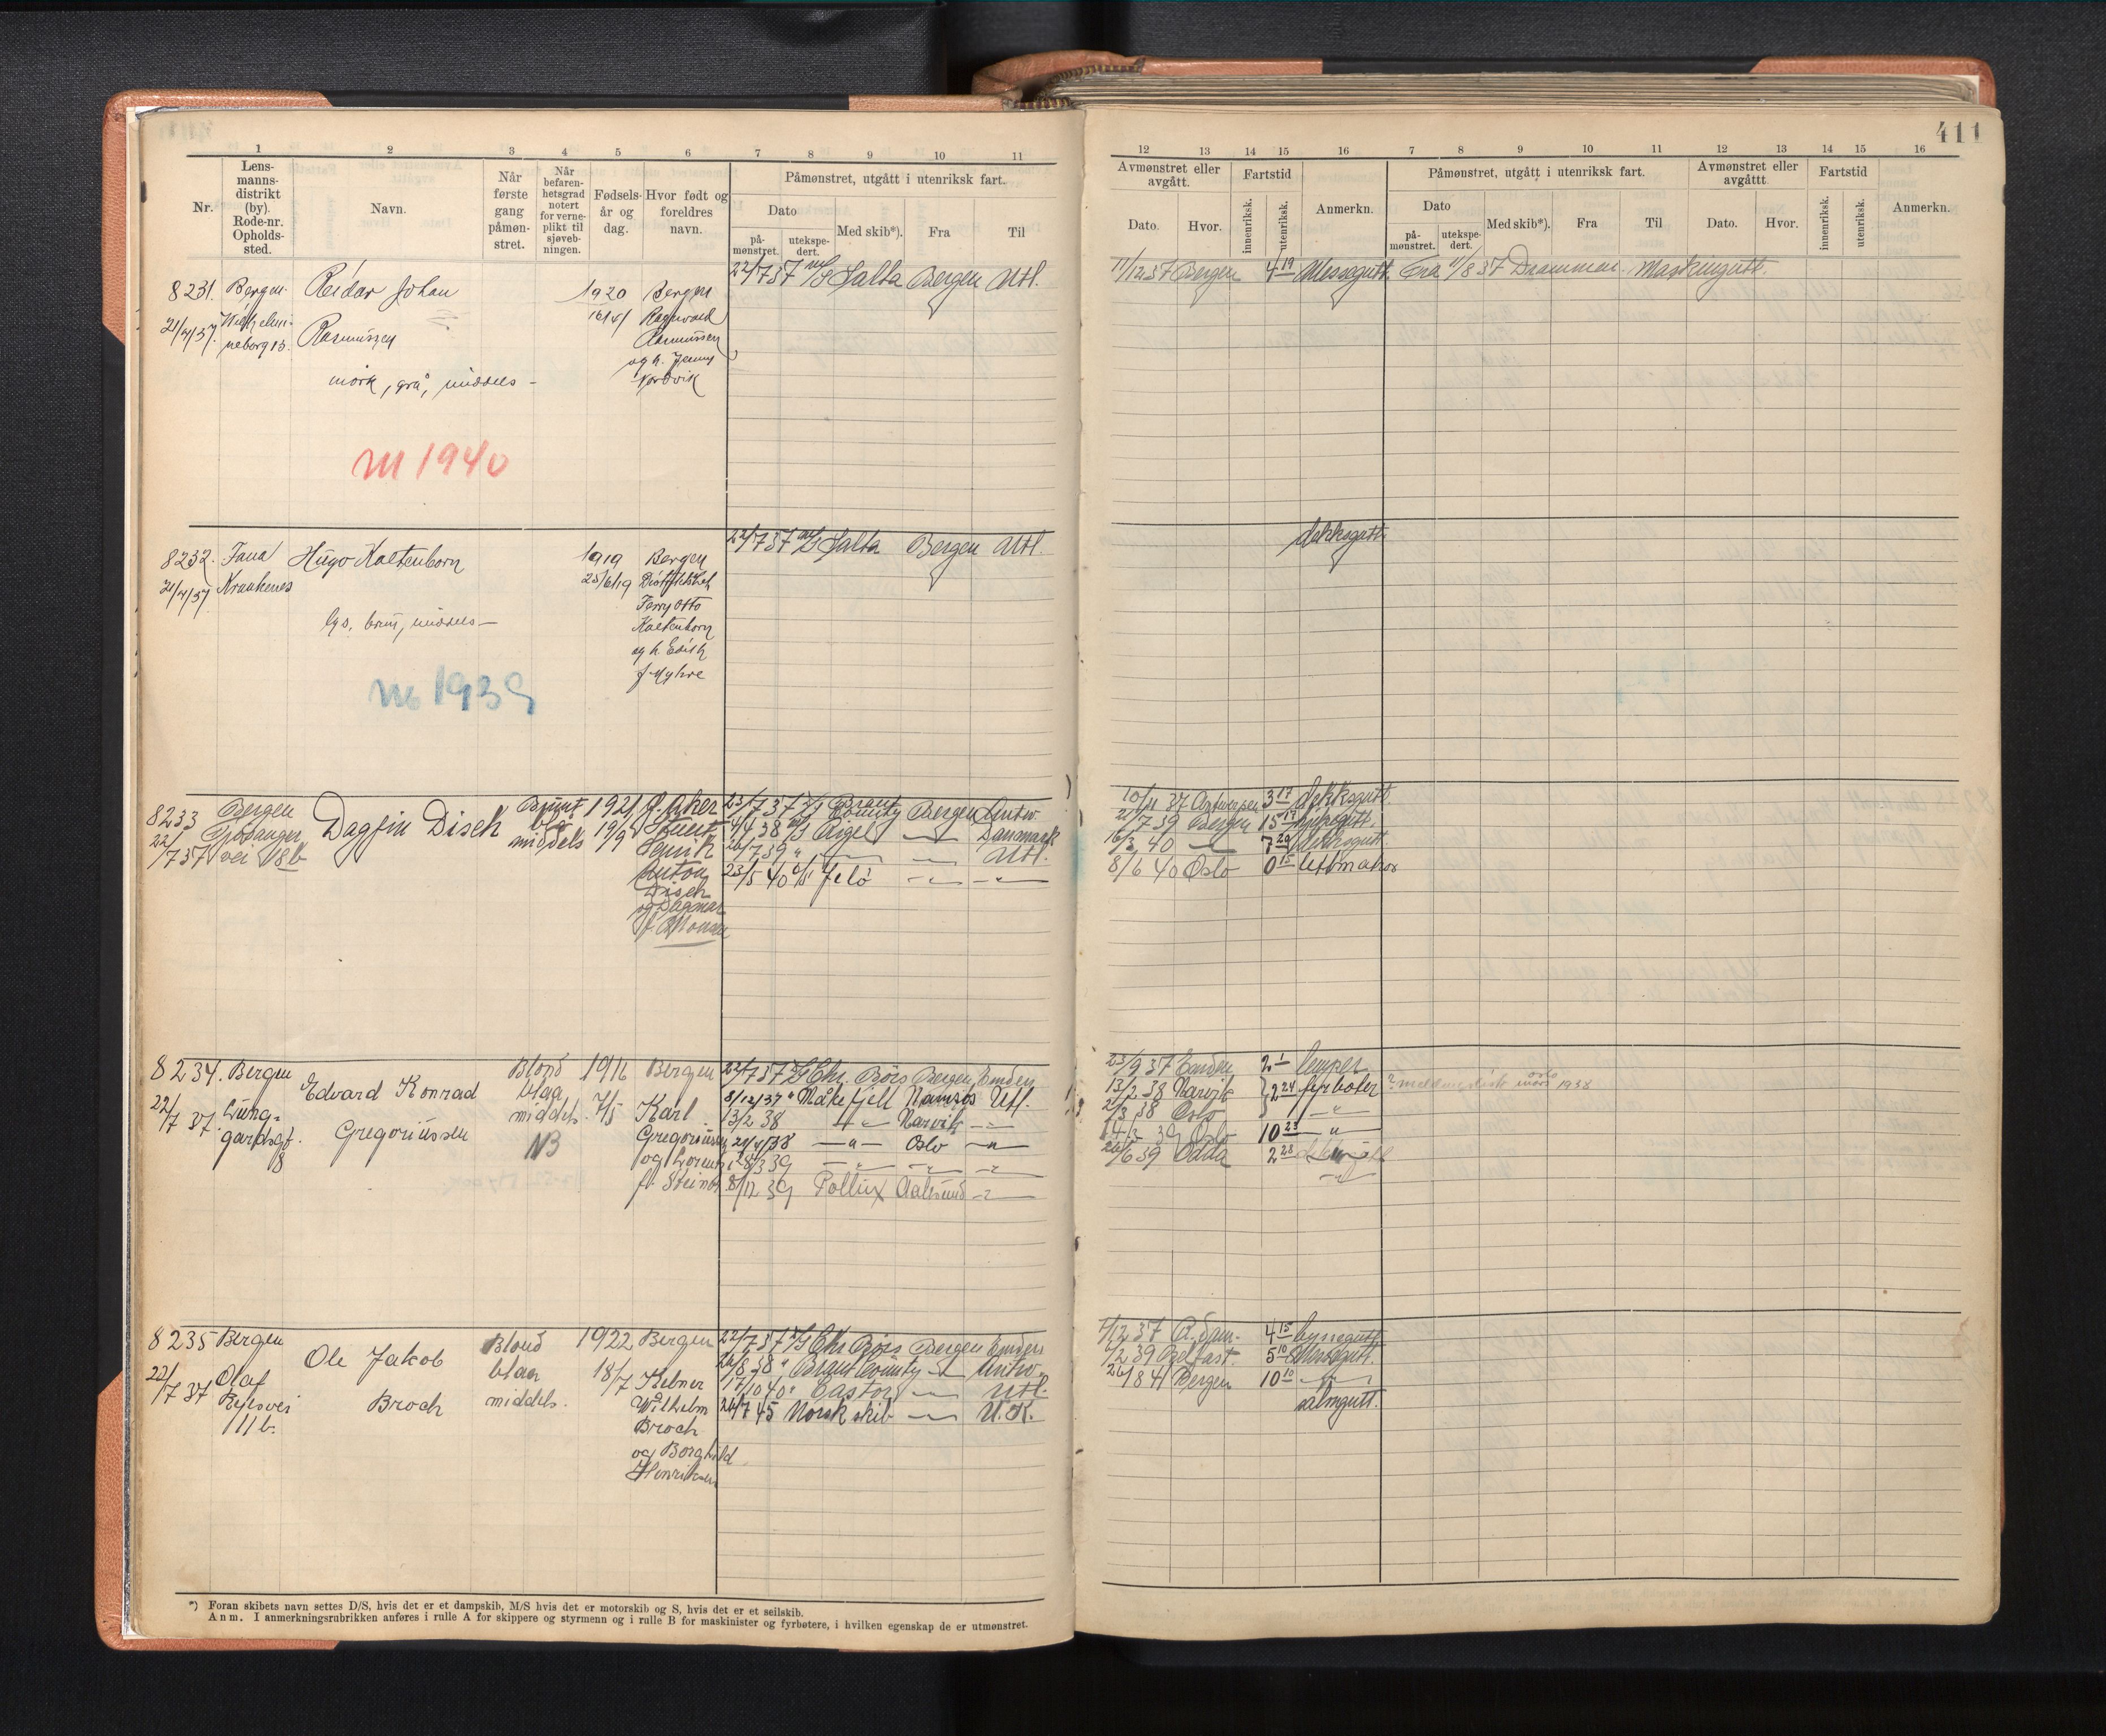 411
1 2 3 4 5 6 7 8 9 10 11
12 13 14 15 16 7 8 9 10 11 12 13 14 15 16
Nr.
Lens-
manns-
distrikt
(by).
Rode-nr.
Opholds-
sted.
Navn.
Når
første
gang
påmøn-
stret.
Når
befaren-
hetsgrad
notert
for verne-
plikt til
sjøveb-
ningen.
Fødsels-
år og
dag.
Hvor født og
foreldres
navn.
Påmønstret, utgått i utenriksk fart.
Dato
på-
mønstret.
utekspe-
dert.
Med skib*).
Fra
Til
Avmønstret eller
avgått.
Dato.
Hvor.
Fartstid
innenriksk.
utenriksk.
Anmerkn.
Påmønstret, utgått i utenriksk fart.
Dato
på-
mønstret.
utekspe-
dert.
Med skib*).
Fra
Til
Avmønstret eller
avgåttt.
Dato.
Hvor.
Fartstid
innenriksk.
utenriksk.
Anmerkn.
8231. Bergen. Reidar Johan 1920 Bergen
21/7/37. Wilhelmi-
neborg 13. Rasmussen
Ragnvald
Rasmussen
og h. Jenny
Nordvik
mörk, grå, middels -
m 1940
22/7 37 M/S Salta Bergen Utl.
11/12 37 Bergen 4 19 Messegutt. Fra 11/8 37 Drammen. Maskingutt.
8232. Fana Hugo Kaltenborn 1919 Bergen
21/7/37 Kraakenes 25/6/19
Ferry Otto
Kaltenborn
og h. Edith
f. Myhre
lys, brun, middels -
m 1939
22/7 37 M/S Salta Bergen Utl.
dekksgutt.
8233 Bergen Dagfin Disch Brunt 1921 f. Aker
22/7 37 vei 18b blå 19/9
middels
Henrik
Anton
Disch
og Dagmar
f. Monsen
23/7 37 Brant County Bergen Antw.
4/4 38 M/S Rigel — Danmark
26/7 39 " — — Utl.
23/5 40 D/S Jelö — —
10/11 37 Antwerpen 3 17 dekksgutt.
21/7 39 Bergen 15 17
16/3 40 — 7 20 dekksgutt.
8/6 40 Oslo 0 15 lettmatros
8234. Bergen Edvard Konrad Blond 1916 Bergen
22/7 37. Lung-
gardsgt.
8
Gregoriussen
blaa
middels. 7/5 Karl
Gregoriussen
og Lorentze
f. Steinst
NB
22/7 37 D/S Chr. Börs Bergen Emden
8/12/37 " Måkefjell Namsos Utl.
13/2 38 — " — Narvik — " —
29/4/38 — " — Oslo — " —
28/3 39 — " — — " — — " —
8/12 39 Pollux Aalesund — " —
23/9 37 Emden 2 1 lemper
13/2 38 Narvik 2 24 fyrböter
2/3 38 Oslo — " —
14/3 39 Oslo 10 23 — " —
26/6 39 Odda 2 28
— " —
8235 Bergen Ole Jakob Blond 1922 Bergen
22/7 37 Olaf
Ryesvei
111b.
Broch
blaa
middels. 18/7 Kebner
Wilhelm
Broch
og Borghild
Henriksen
22/7 37 D/S Chr. Börs Bergen Emden
26/8 38 " Brant County — Antw.
17/10 40 " Castor — Utl.
26/7 45 Norsk skib — U.K.
7/12 37 R.dam. 4 15 byssegutt
6/2 39 Belfast. 5 10 Messegutt.
26/8 41 Bergen 10 10 — " —
salongutt.
*) Foran skibets navn settes D/S, hvis det er et dampskib, M/S hvis det er motorskib og S, hvis det er et seilskib.
Anm. I anmerkningsrubrikken anføres i rulle A for skippere og styrmenn og i rulle B for maskinister og fyrbøtere, i hvilken egenskap de er utmønstret.